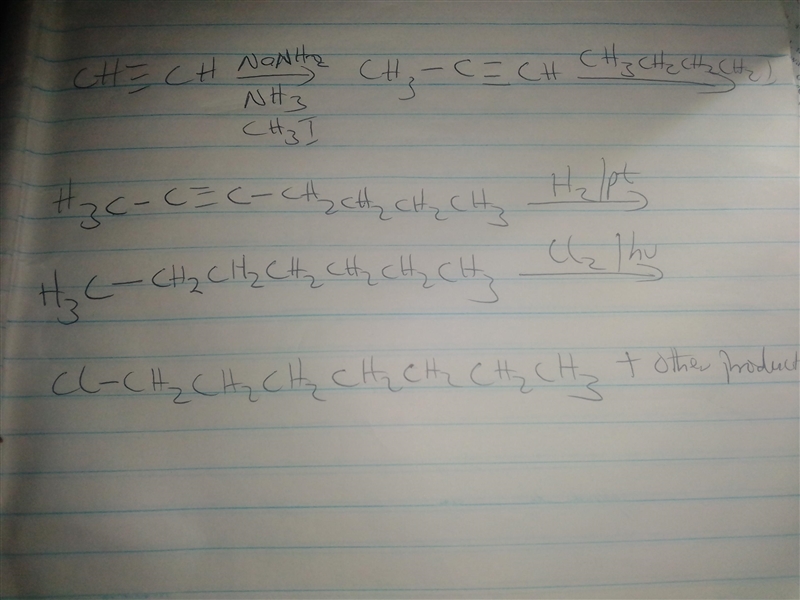 CH≡CH NaNH2 NH3 CH3I CH3-C≡CH CH3CH2CH2CH2I
H3C-C≡C-CH2CH2CH2CH3 H2/pt
H3C-CH2CH2CH2CH2CH2CH3 Cl2/hν
Cl-CH2CH2CH2CH2CH2CH2CH3 + other product